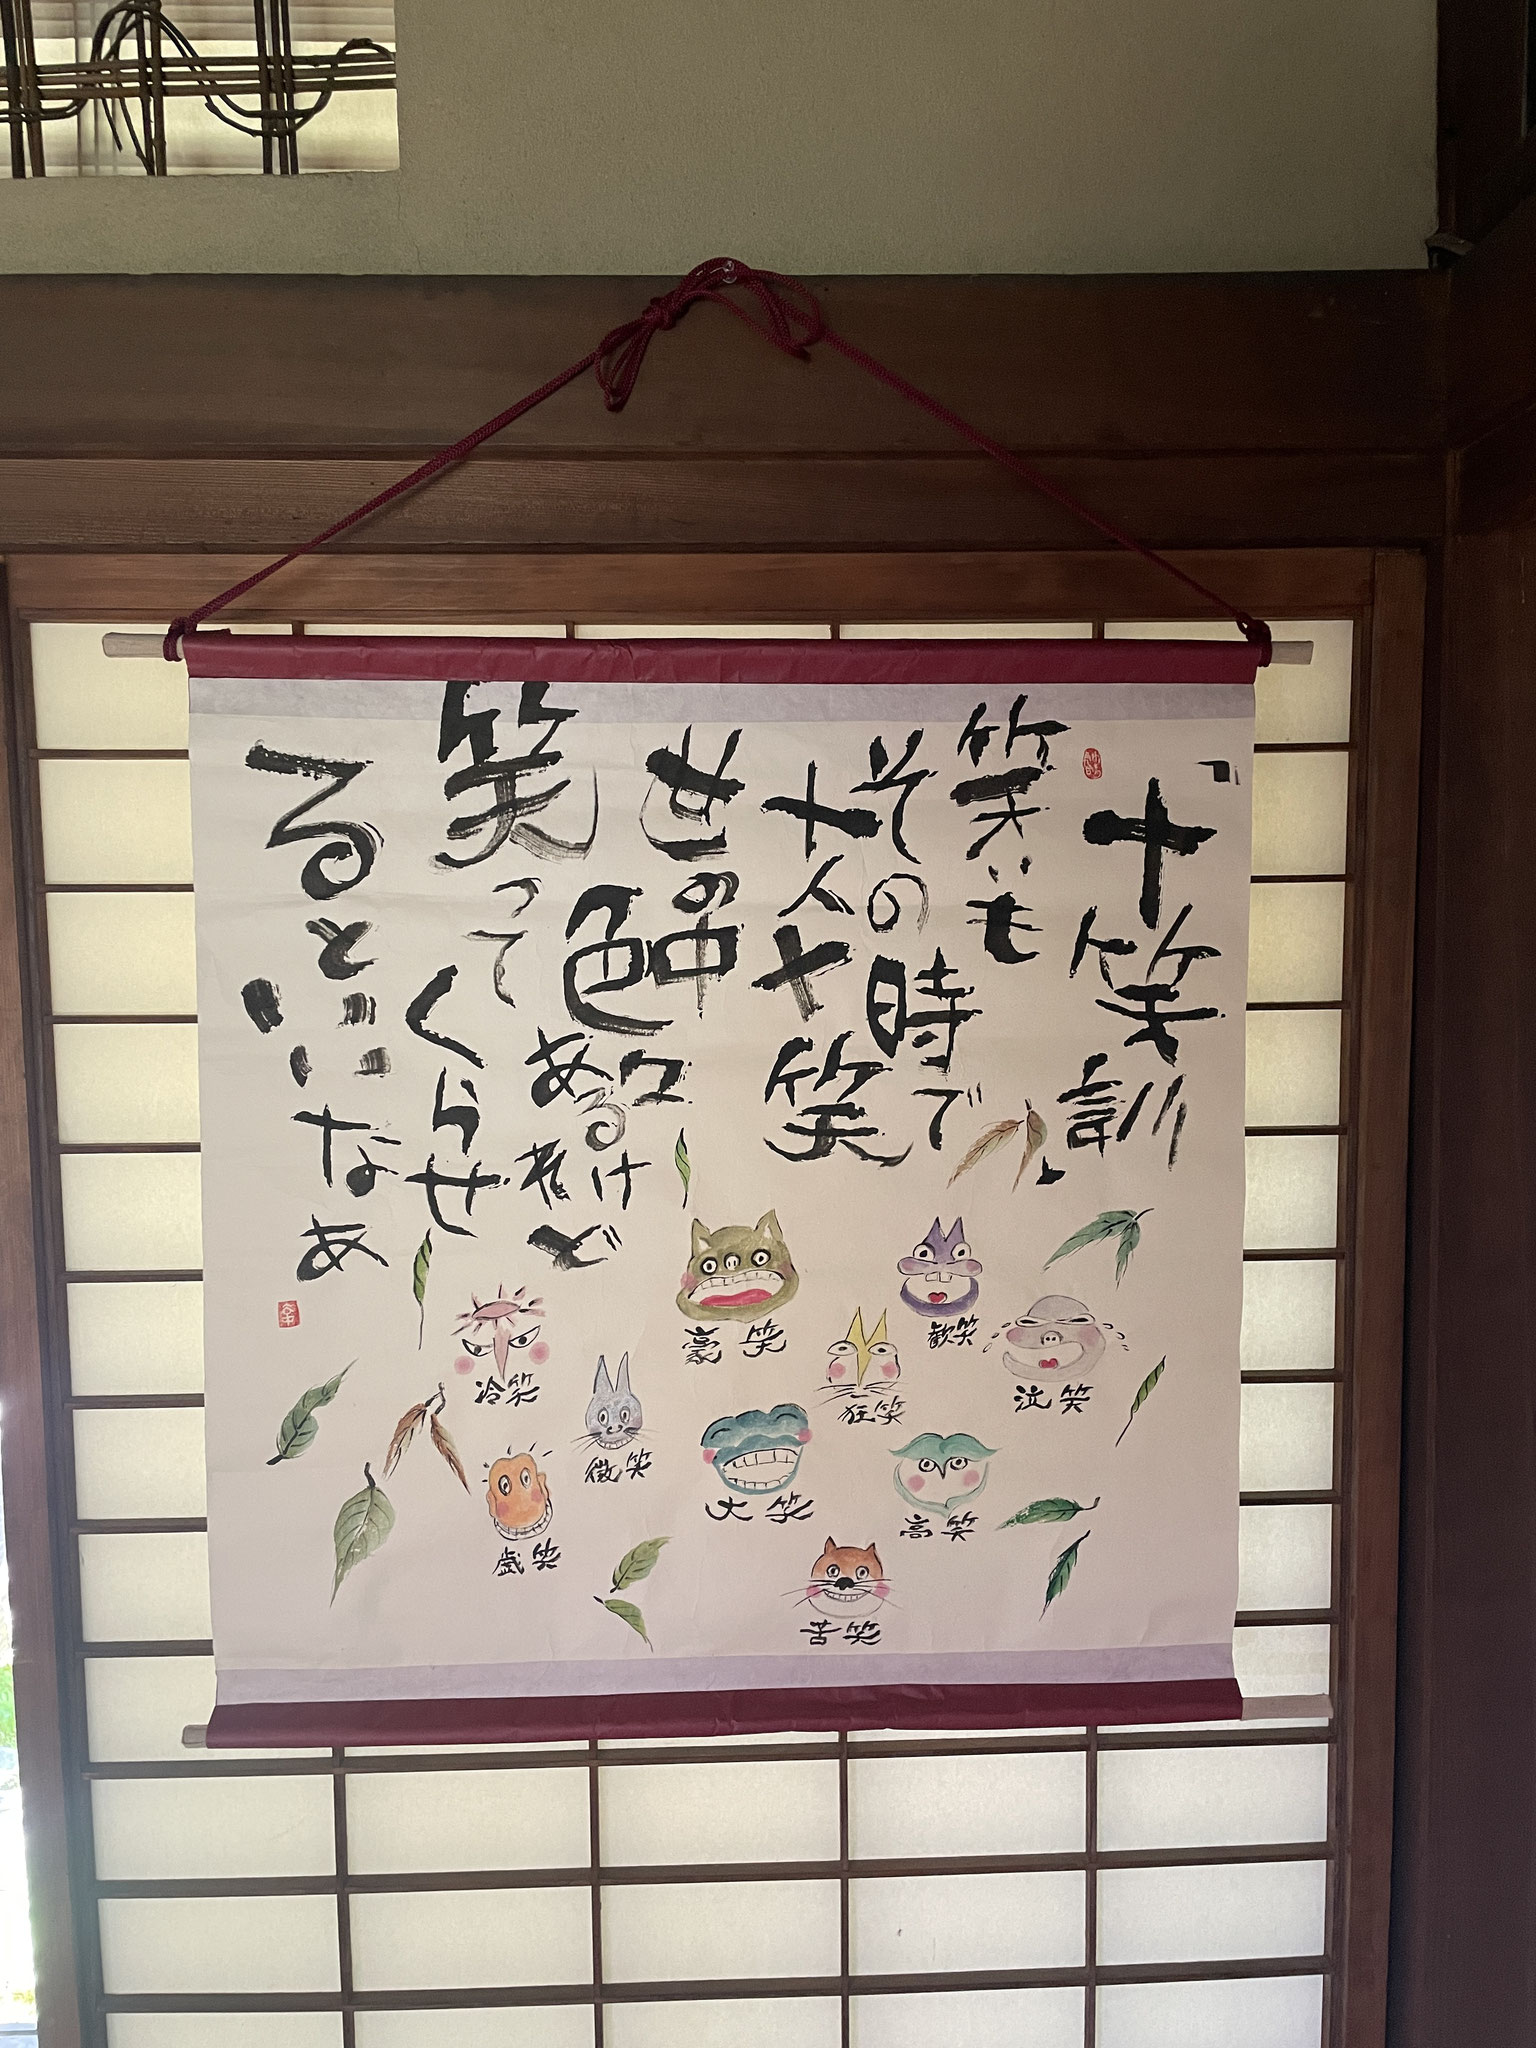 「十笑訓」
笑いも
その時で
十人十笑
世の中
色々
あるけ
れど
笑って
くらせ
るといいなあ
豪笑
歓笑
泣笑
冷笑
狂笑
微笑
大笑
高笑
戯笑
苦笑